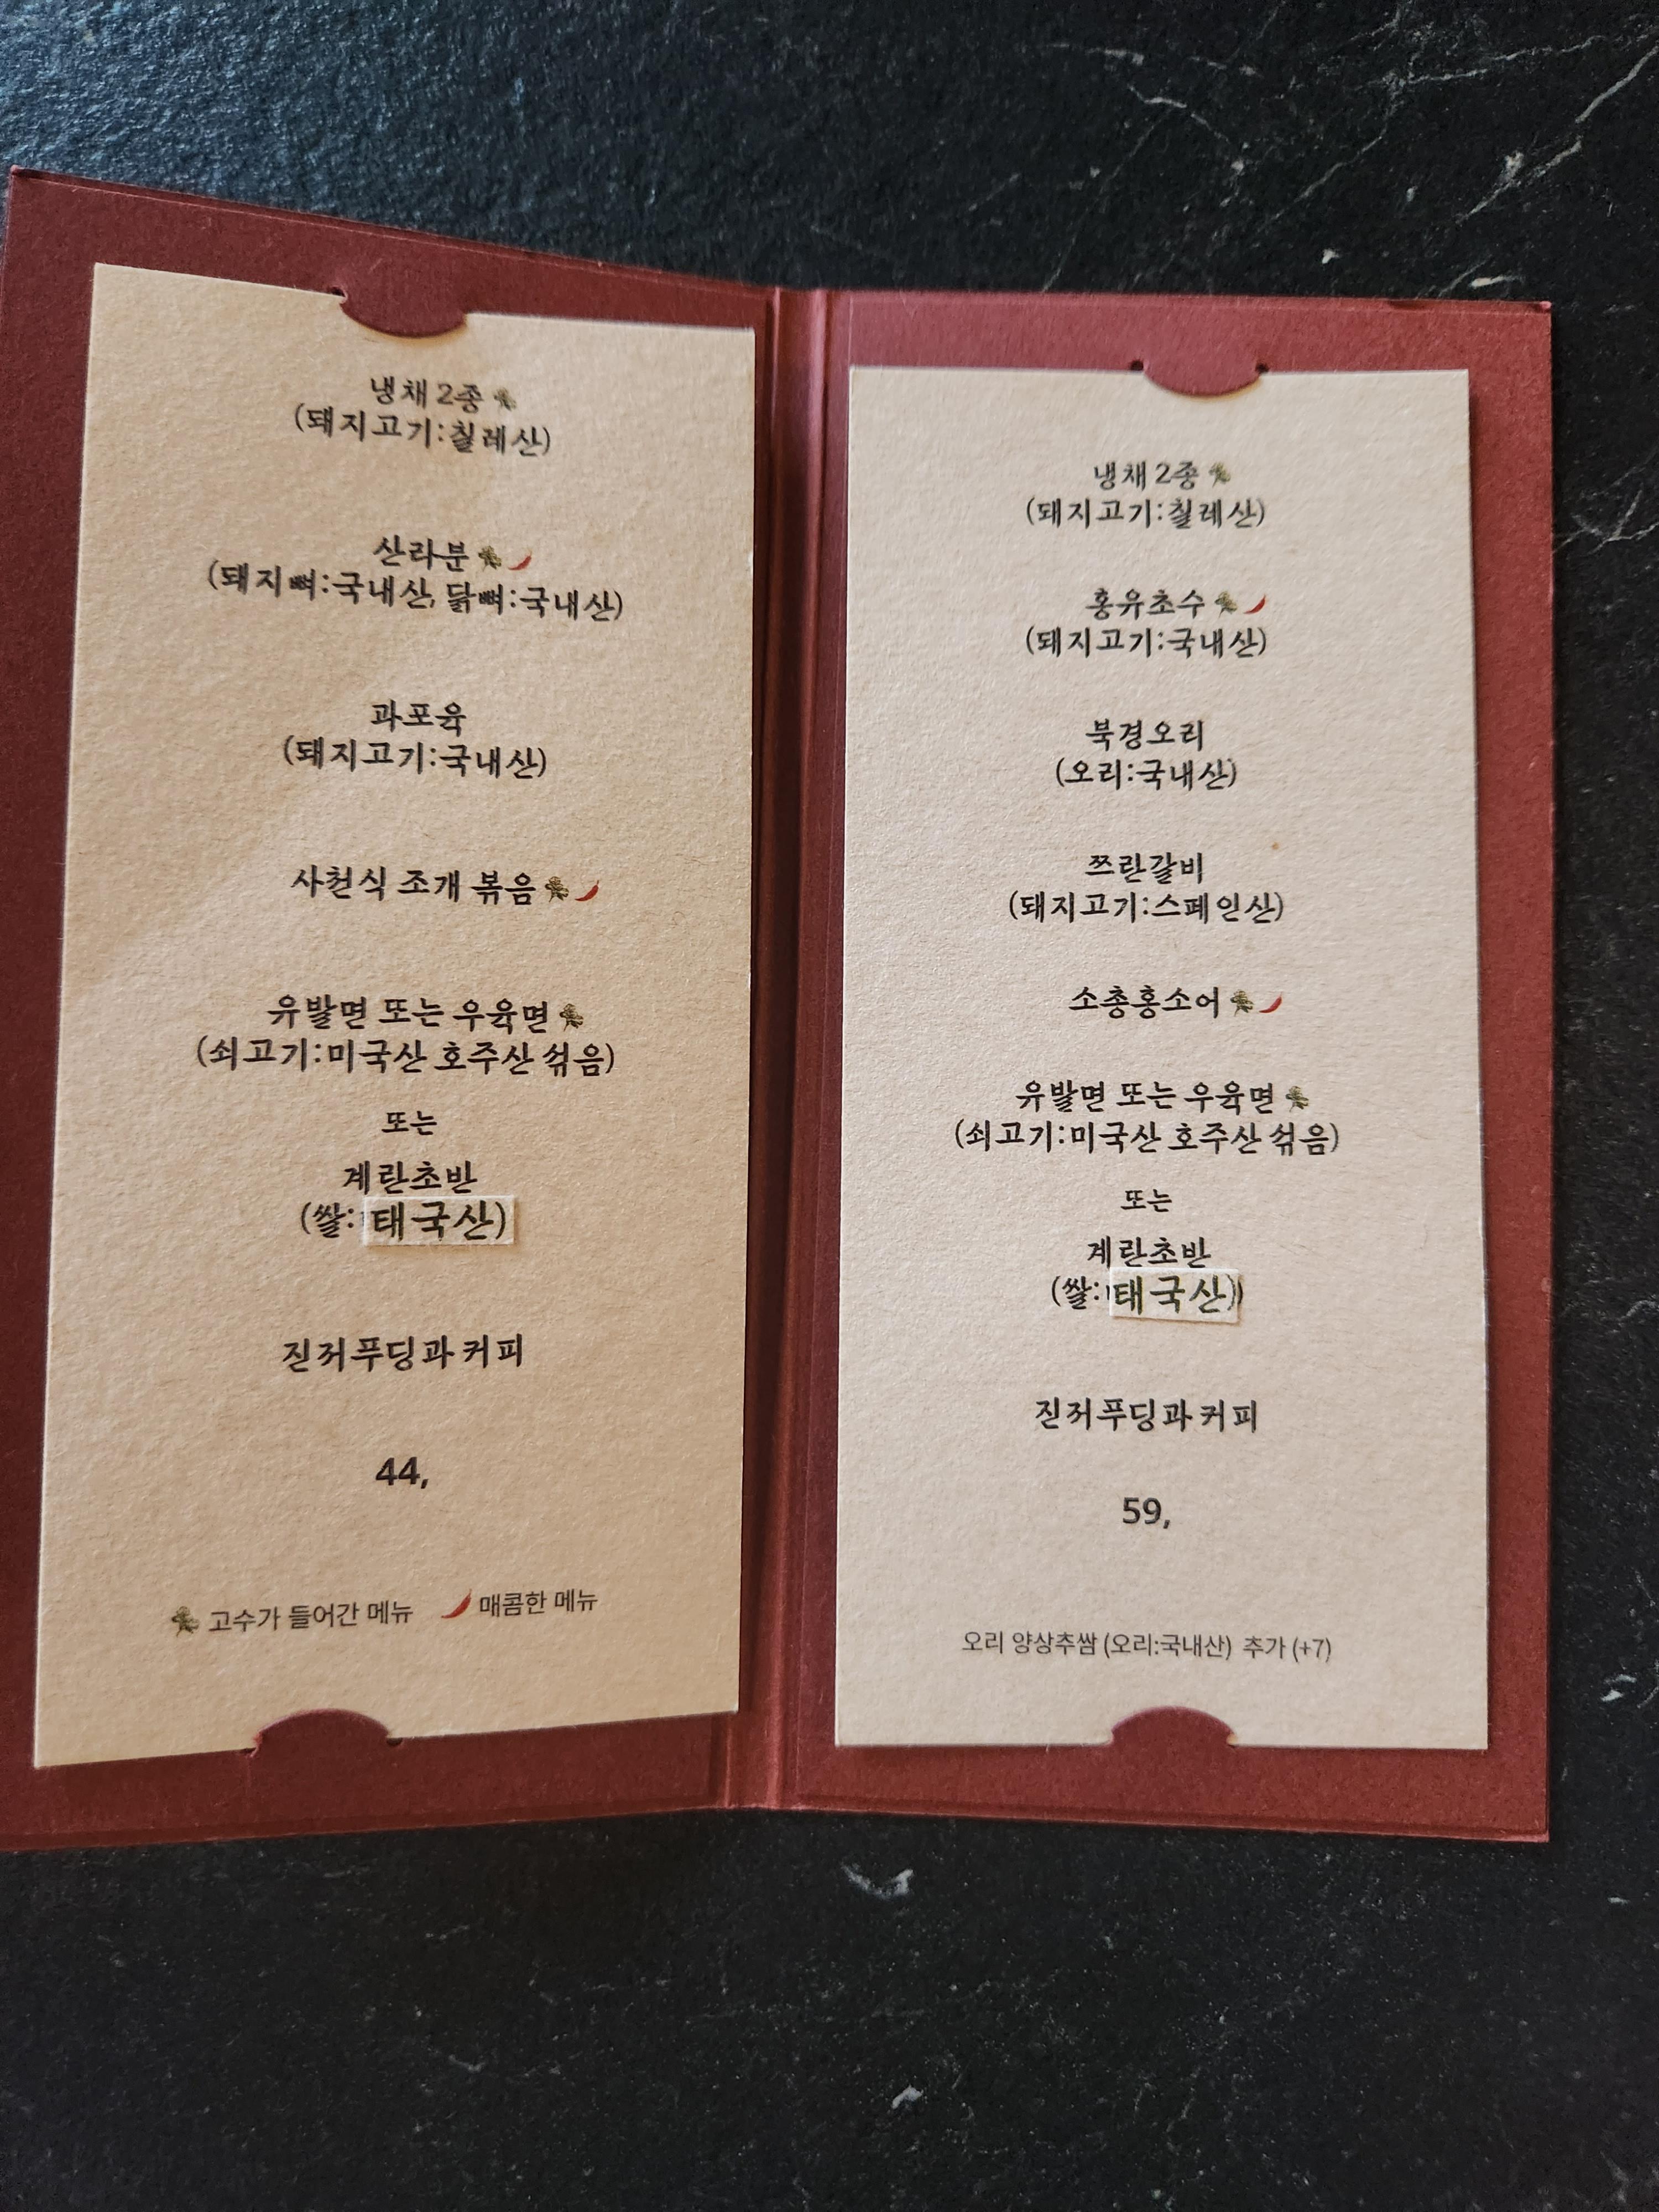 냉채 2종
(돼지고기:칠레산)
산라분
(돼지뼈:국내산, 닭뼈:국내산)
과포육
(돼지고기:국내산)
사천식 조개 볶음
유발면 또는 우육면
(쇠고기:미국산 호주산 섞음)
또는
계란초반
(쌀:태국산)
진저푸딩과 커피
44,
고수가 들어간 메뉴 매콤한 메뉴
냉채 2종
(돼지고기:칠레산)
홍유초수
(돼지고기:국내산)
북경오리
(오리:국내산)
쯔란갈비
(돼지고기:스페인산)
소총홍소어
유발면 또는 우육면
(쇠고기:미국산 호주산 섞음)
또는
계란초반
(쌀:태국산)
진저푸딩과 커피
59,
오리 양상추쌈 (오리:국내산) 추가 (+7)